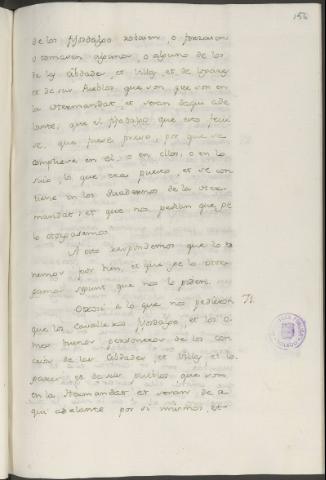 156
de los ffijosdalgo robaren, o forzaren
o tomaren algunos, o alguno de los
de las Cibdades, et Villas, et de Logares
et de sus Pueblos que son, que son en
la Hermandat, et seran daqui ade
lante, que el fijosdalgo, que esto ficie
re, que sea preso, por que se
cumpliere en el, o en ellos, o en lo
suio, lo que era puesto, et se con
tiene en los Quadernos de la Her
mandat, et que nos pedian que ge
lo otorgasemos
A esto respondemos que lo te
nemos por bien, et que ge lo otor
gamos segunt que nos lo piden.
Otrosi a lo que nos pedieron
que los Cavalleros ffijosdalgo, et los o
mes buenos personeros de los con
ceios de las Cibdades, et Villas et lo
gares et de sus pueblos que son
en la Hermandat et seran de a
qui adelante por si mismos, et